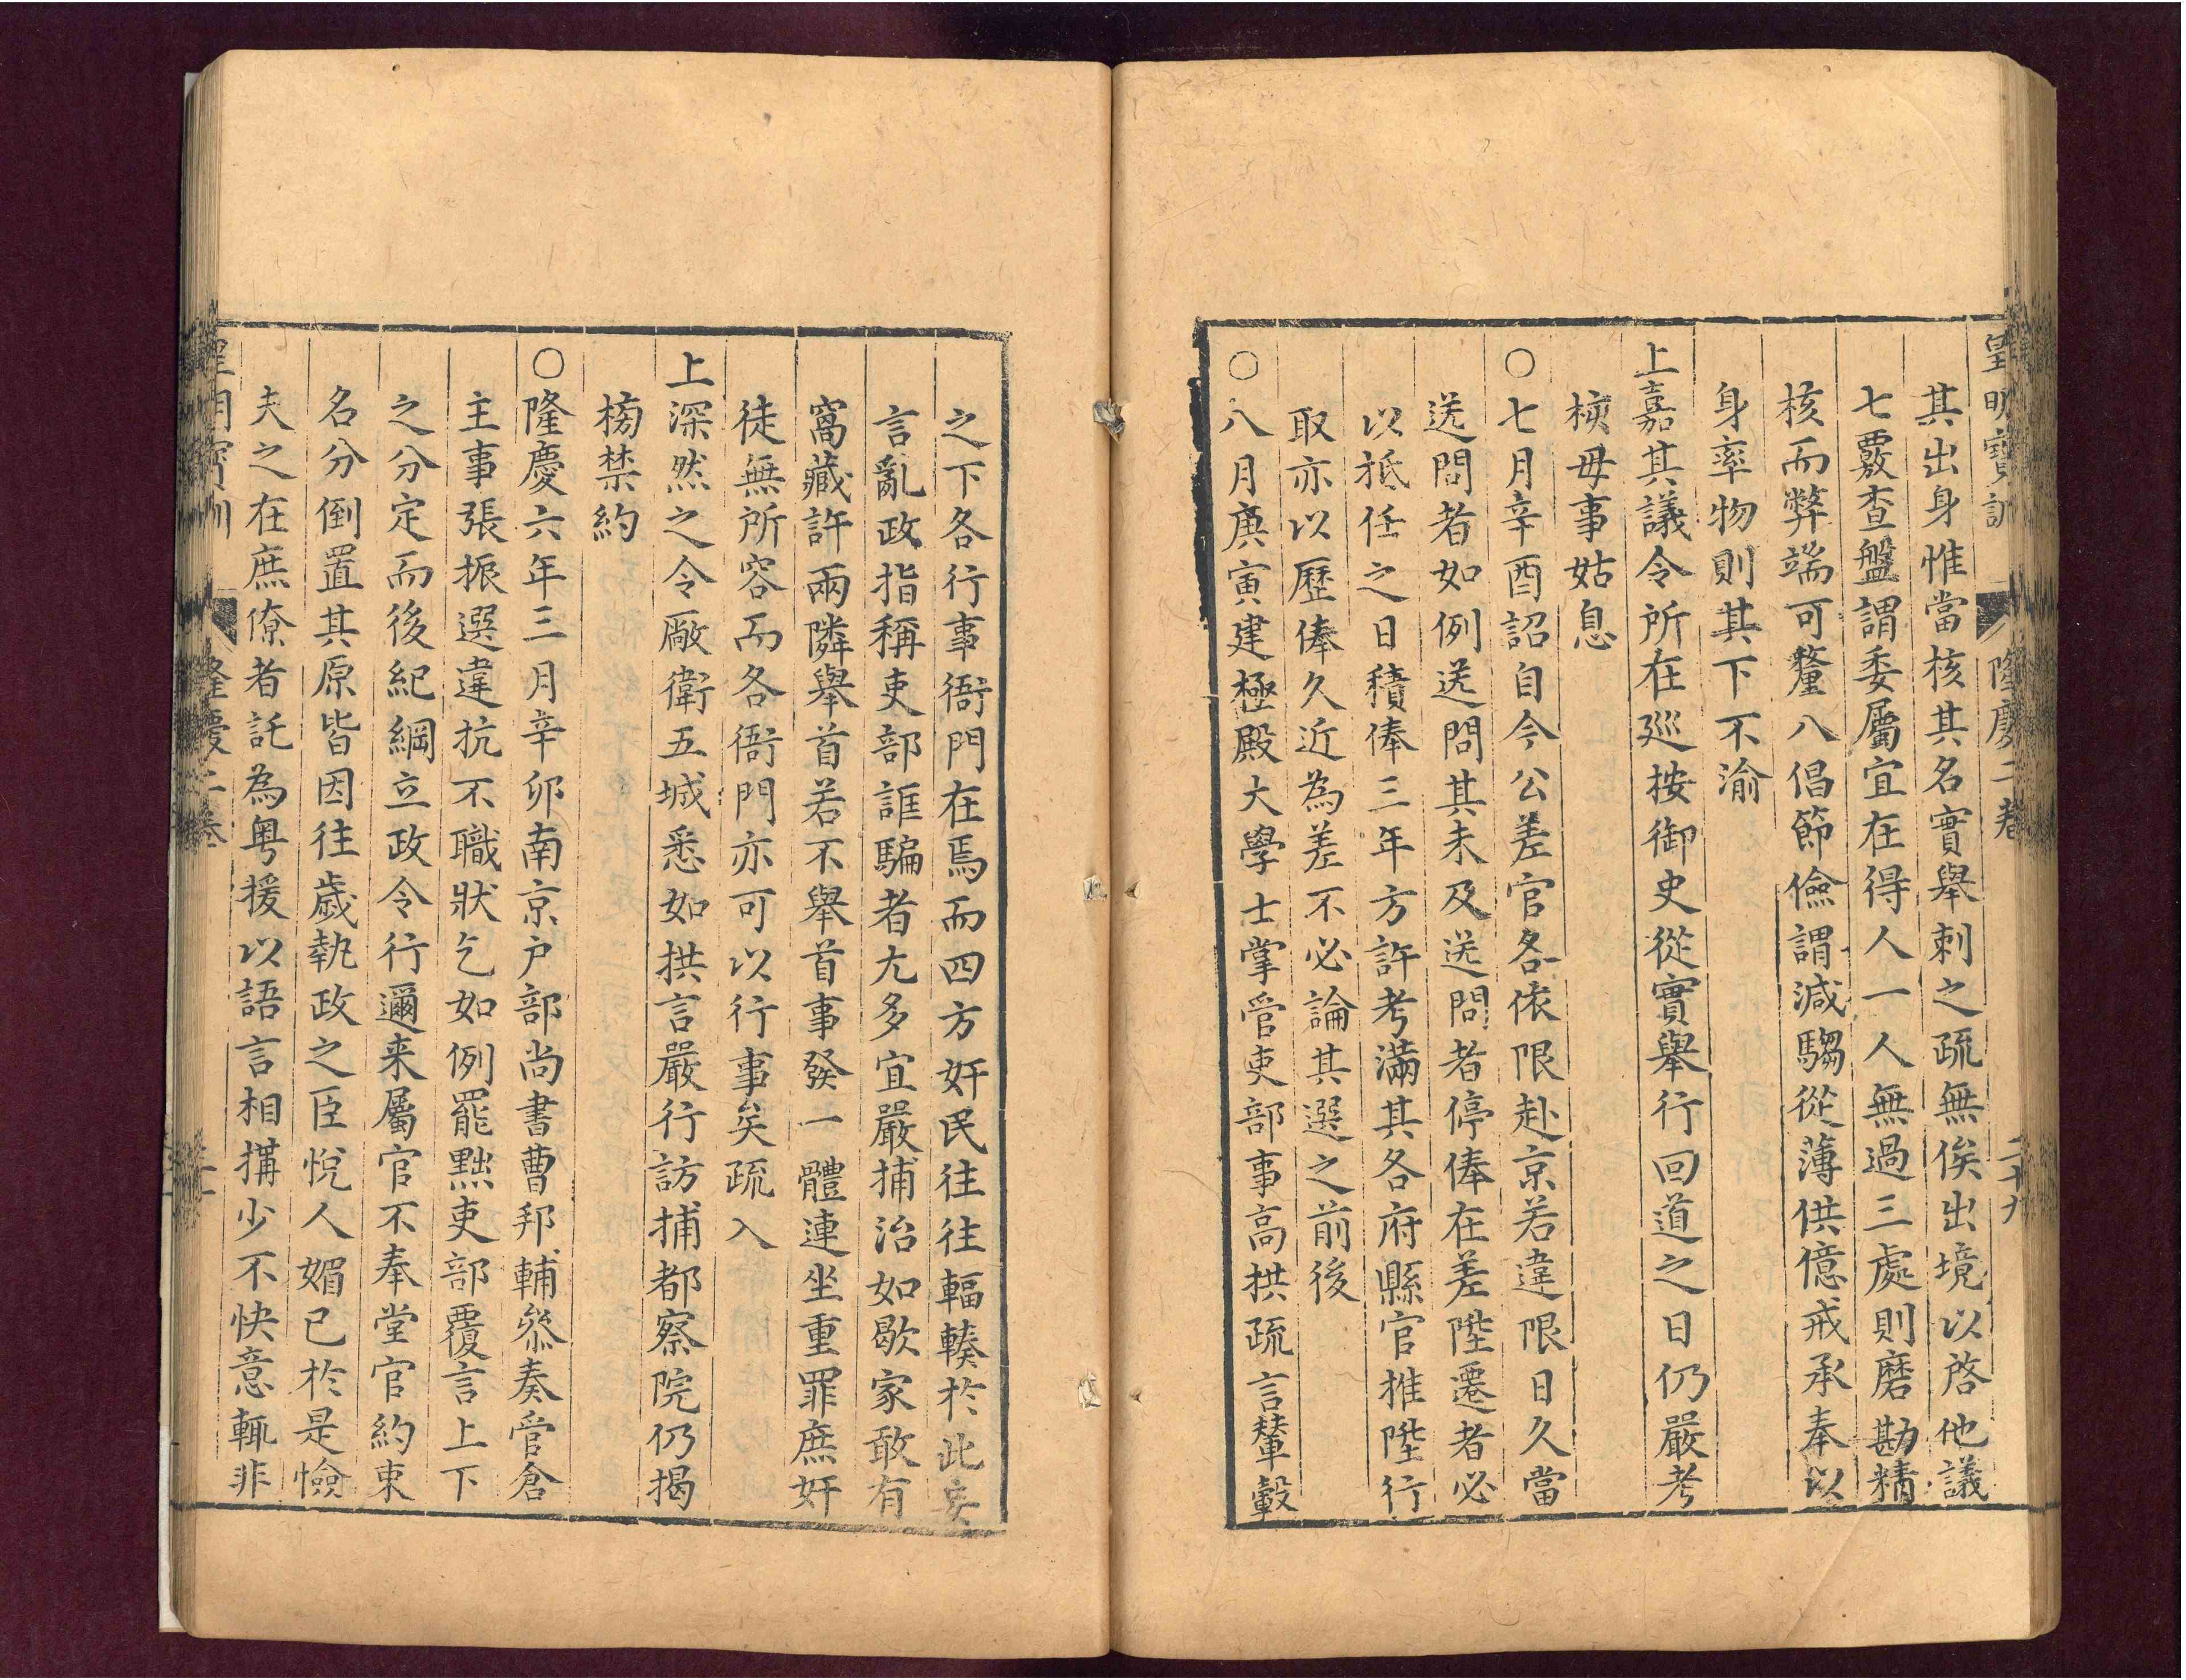 皇明寶訓　隆慶二卷　二十九
其出身惟當核其名實舉刺之疏無俟出境以啓他議
七覈查盤謂委屬宜在得人一人無過三處則磨勘精
核而弊端可釐八倡節儉謂減騶從薄供億戒承奉以
身率物則其下不渝
上嘉其議令所在廵按御史從實舉行回道之日仍嚴考
核毋事姑息
○七月辛酉詔自今公差官各依限赴京若違限日久當
送問者如例送問其未及送問者停俸在差陞遷者必
以抵任之日積俸三年方許考滿其各府縣官推陞行
取亦以歷俸久近為差不必論其選之前後
○八月庚寅建極殿大學士掌管吏部事高拱疏言輦轂
之下各行事衙門在焉而四方奸民往往輻輳於此妄
言亂政指稱吏部誆騙者尤多宜嚴捕治如歇家敢有
窩藏許兩隣舉首若不舉首事發一體連坐重罪庶奸
徒無所容而各衙門亦可以行事矣疏入
上深然之令廠衛五城悉如拱言嚴行訪捕都察院仍揭
榜禁約
○隆慶六年三月辛卯南京户部尚書曹邦輔叅奏管倉
主事張振選違抗不職狀乞如例罷黜吏部覆言上下
之分定而後紀綱立政令行邇来屬官不奉堂官約束
名分倒置其原皆因往歲執政之臣悅人媚已於是憸
夫之在庶僚者託為粤援以語言相搆少不快意輒非
皇明寶訓　隆慶二卷